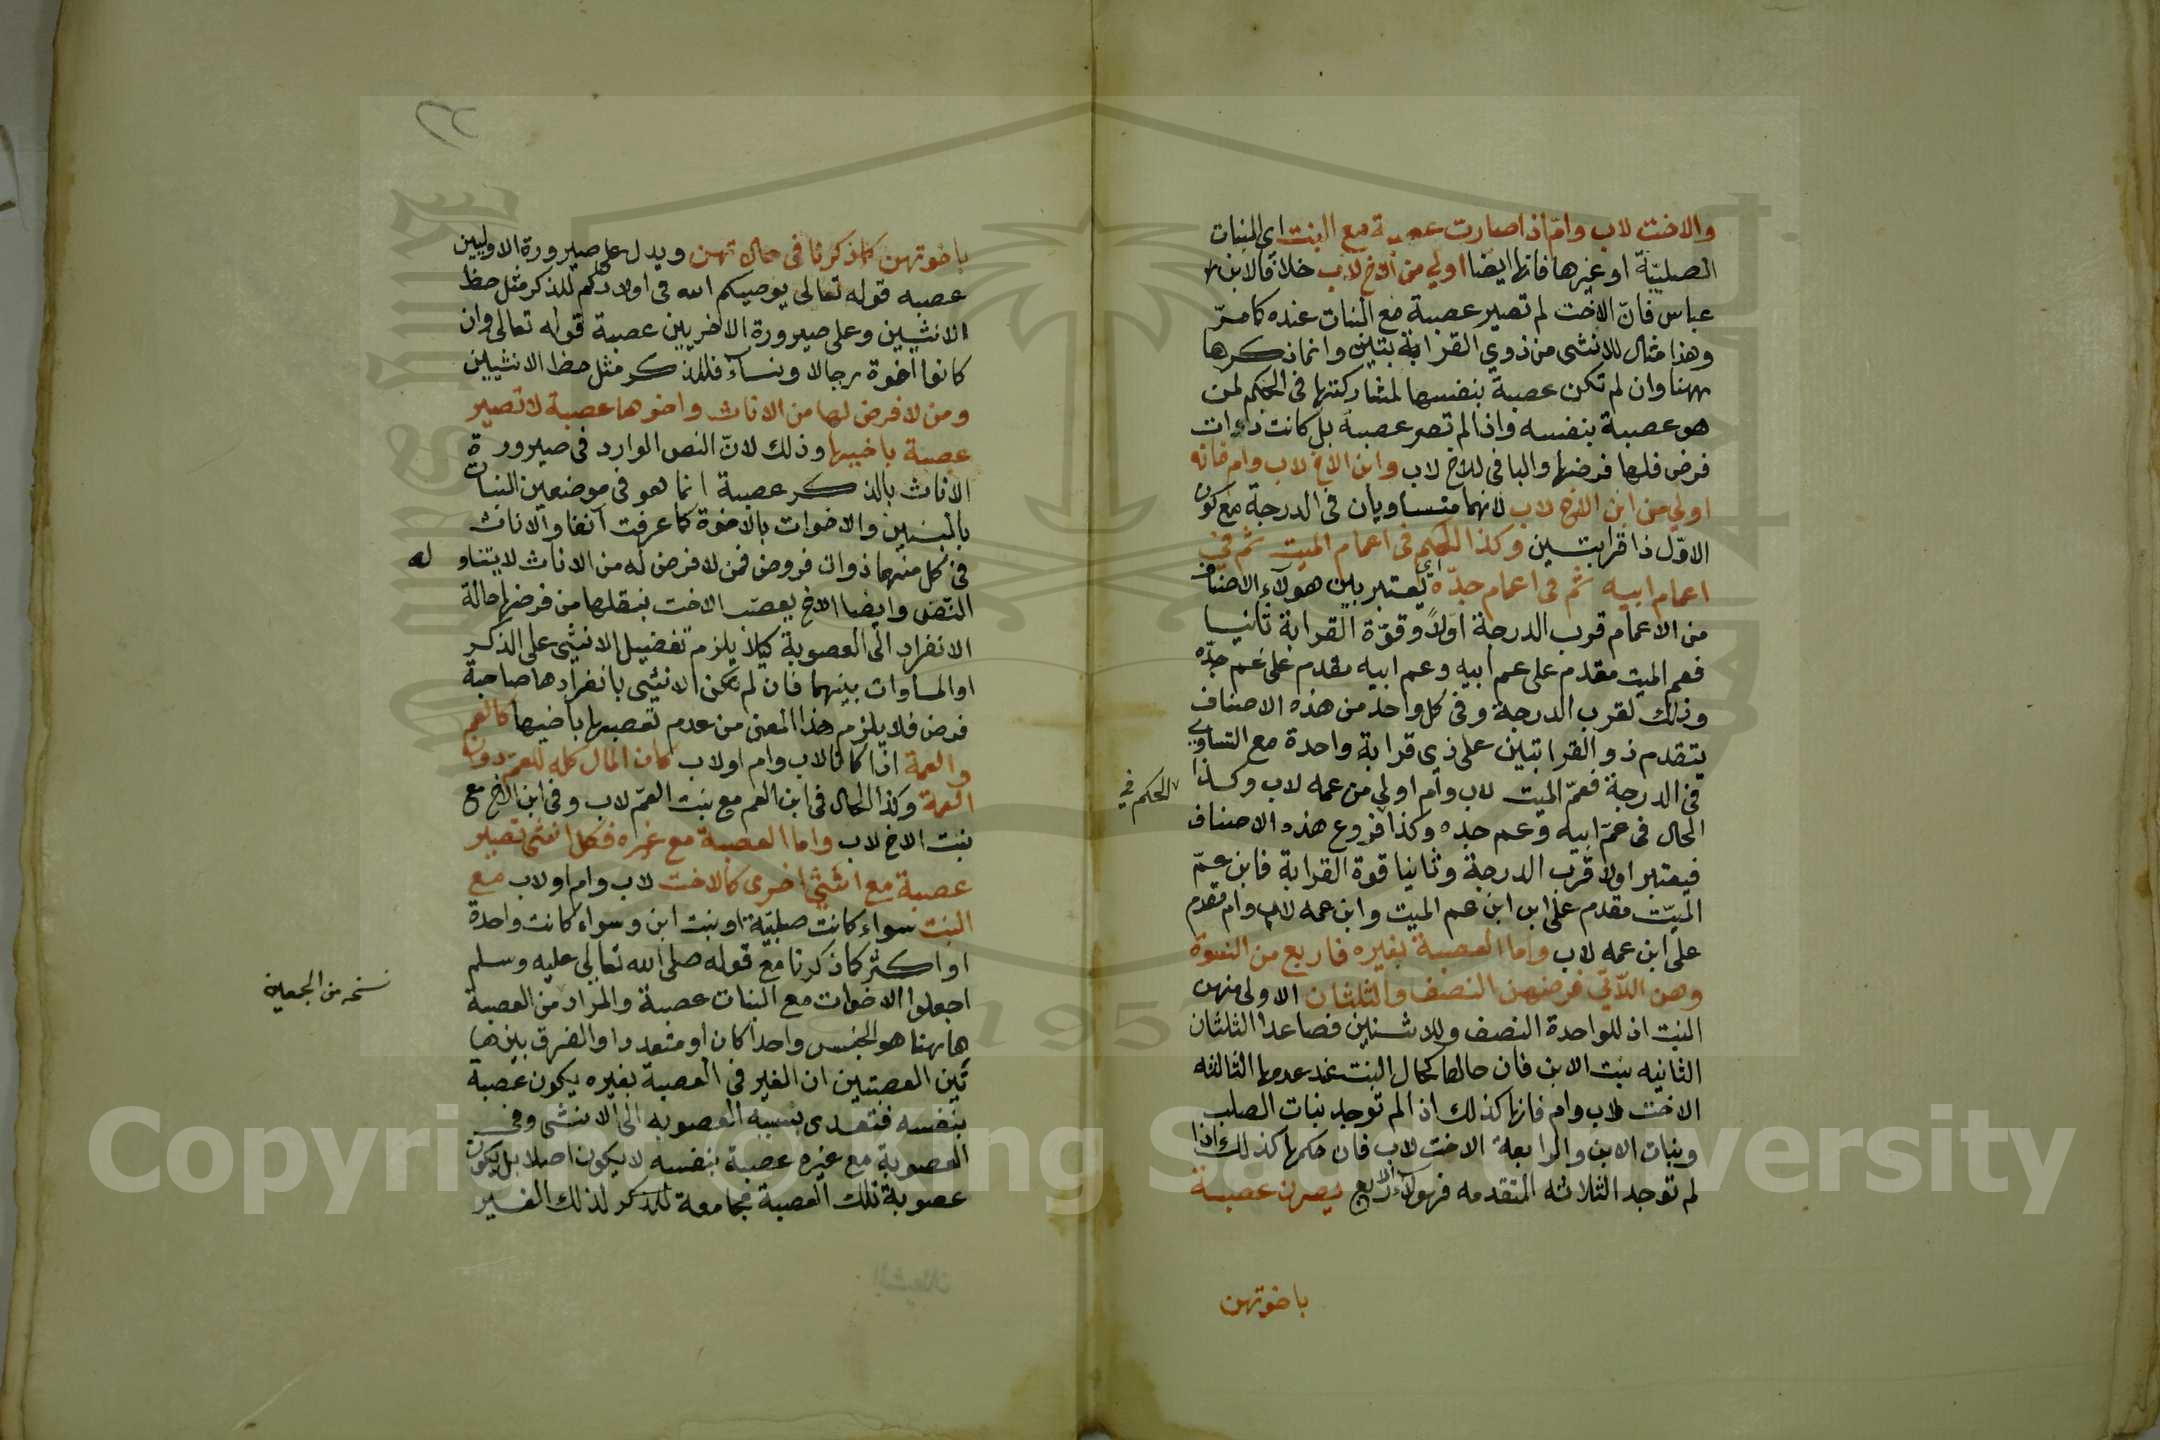 والاخت لاب وام اذا صارت عصبة مع البنت اي البنات
الصلبيّة او غيرها فانها ايضا اولي من الاخ لاب خلافا لابن
عباس فانّ الاخت لم تصير عصبة مع البنات عنده كما مرّ
وهذا مثال للانثى من ذوي القرابتين وانما ذكرها
ههنا وان لم تكن عصبة بنفسها لمشاركتها فى الحكم لمن
هو عصبة بنفسه واذا لم تصر عصبة بل كانت ذات
فرض فلها فرضها والباقى للاخ لاب وابن الاخ لاب وام فانه
اولي من ابن الاخ لاب لانهما متساويان فى الدرجة مع كون
الاوّل ذا قرابتين وكذا الحكم فى اعمام الميت ثم في
اعمام ابيه ثم فى اعمام جدّه اي يعتبر بين هولآء الاصناف
من الاعمام قرب الدرجة اوّلاً وقوّة القرابة ثانيا
فعم الميت مقدم على عم ابيه وعم ابيه مقدم على عم جدّه
وذلك لقرب الدرجة وفى كل واحد من هذه الاصناف
يتقدم ذو القرابتين على ذى قرابة واحدة مع التساوي
فى الدرجة فعمّ الميت لاب وام اولي من عمه لاب وكذا
الحكم في
الحال فى عمّ ابيه وعم جده وكذا فروع هذه الاصناف
فيعتبر اولا قرب الدرجة وثانيا قوة القرابة فابن عمّ
الميّت مقدم على ابن ابن عم الميت وابن عمه لاب وام مقدم
على ابن عمه لاب واما العصبة بغيره فاربع من النسوة
وهن اللآتي فرضهن النصف والثلثان الاولى منهن
البنت اذ للواحدة النصف وللاثنين فصاعدا الثلثان
الثانيه بنت الابن فان حالها كحال البنت عند عدمها الثالثه
الاخت لاب وام فانها كذلك اذا لم توجد بنات الصلب
وبنات الابن والرابعة الاخت لاب فان حكمها كذلك اذا
لم توجد الثلاثه المتقدمه فهولآء الاربع يصرن عصبة
باخوتهن
باخوتهن كما ذكرنا فى حالاتهن ويدل على صيرورة الاوليين
عصبه قوله تعالى يوصيكم الله فى اولادكم للذكر مثل حظ
الانثيين وعلى صيرورة الاخريين عصبة قوله تعالى وان
كانوا اخوة رجالا ونسآء فللذكر مثل حظ الانثيين
ومن لا فرض لها من الاناث واخوها عصبة لا تصير
عصبة باخيها وذلك لانّ النص الوارد فى صيرورة
الاناث بالذكر عصبة انما هو فى موضعين البنات
بالبنين والاخوات بالاخوة كما عرفت آنفا والاناث
فى كل منهما ذوات فروض فمن لا فرض له من الاناث لا يتناو
له
النص وايضا الاخ يعصب الاخت بنقلها من فرضها حالة
الانفراد الى العصوبة كيلا يلزم تفضيل الانثى على الذكر
او المساوات بينهما فان لم تكن الانثى بانفرادها صاحبة
فرض فلا يلزم هذا المعنى من عدم تعصيبها باخيها كالعم
والعمة اذا كانا لاب وام او لاب كان المال كله للعمّ دون
العمة وكذا الحال فى ابن العم مع بنت العمّ لاب وفى ابن الاخ مع
بنت الاخ لاب واما العصبة مع غيره فكل انثى تصير
عصبة مع انثى اخرى كالاخت لاب وام او لاب مع
البنت سواء كانت صلبيّة او بنت ابن وسواء كانت واحدة
او اكثر كما ذكرنا مع قوله صلى الله تعالى عليه وسلم
اجعلوا الاخوات مع البنات عصبة والمراد من العصبة
نسخه من الجمعين
هاههنا هو الجنس واحدا كان او متعددا والفرق بين ها
تين العصبتين ان الغير فى العصبة بغيره يكون عصبة
بنفسه فتتعدى بسببه العصوبه الى الانثى وفى
العصوبة مع غيره عصبة بنفسه لا يكون اصلا بل يكون
عصوبة تلك العصبة مجامعة للذكر لذلك الغير
Copyright © King Saud University
1957